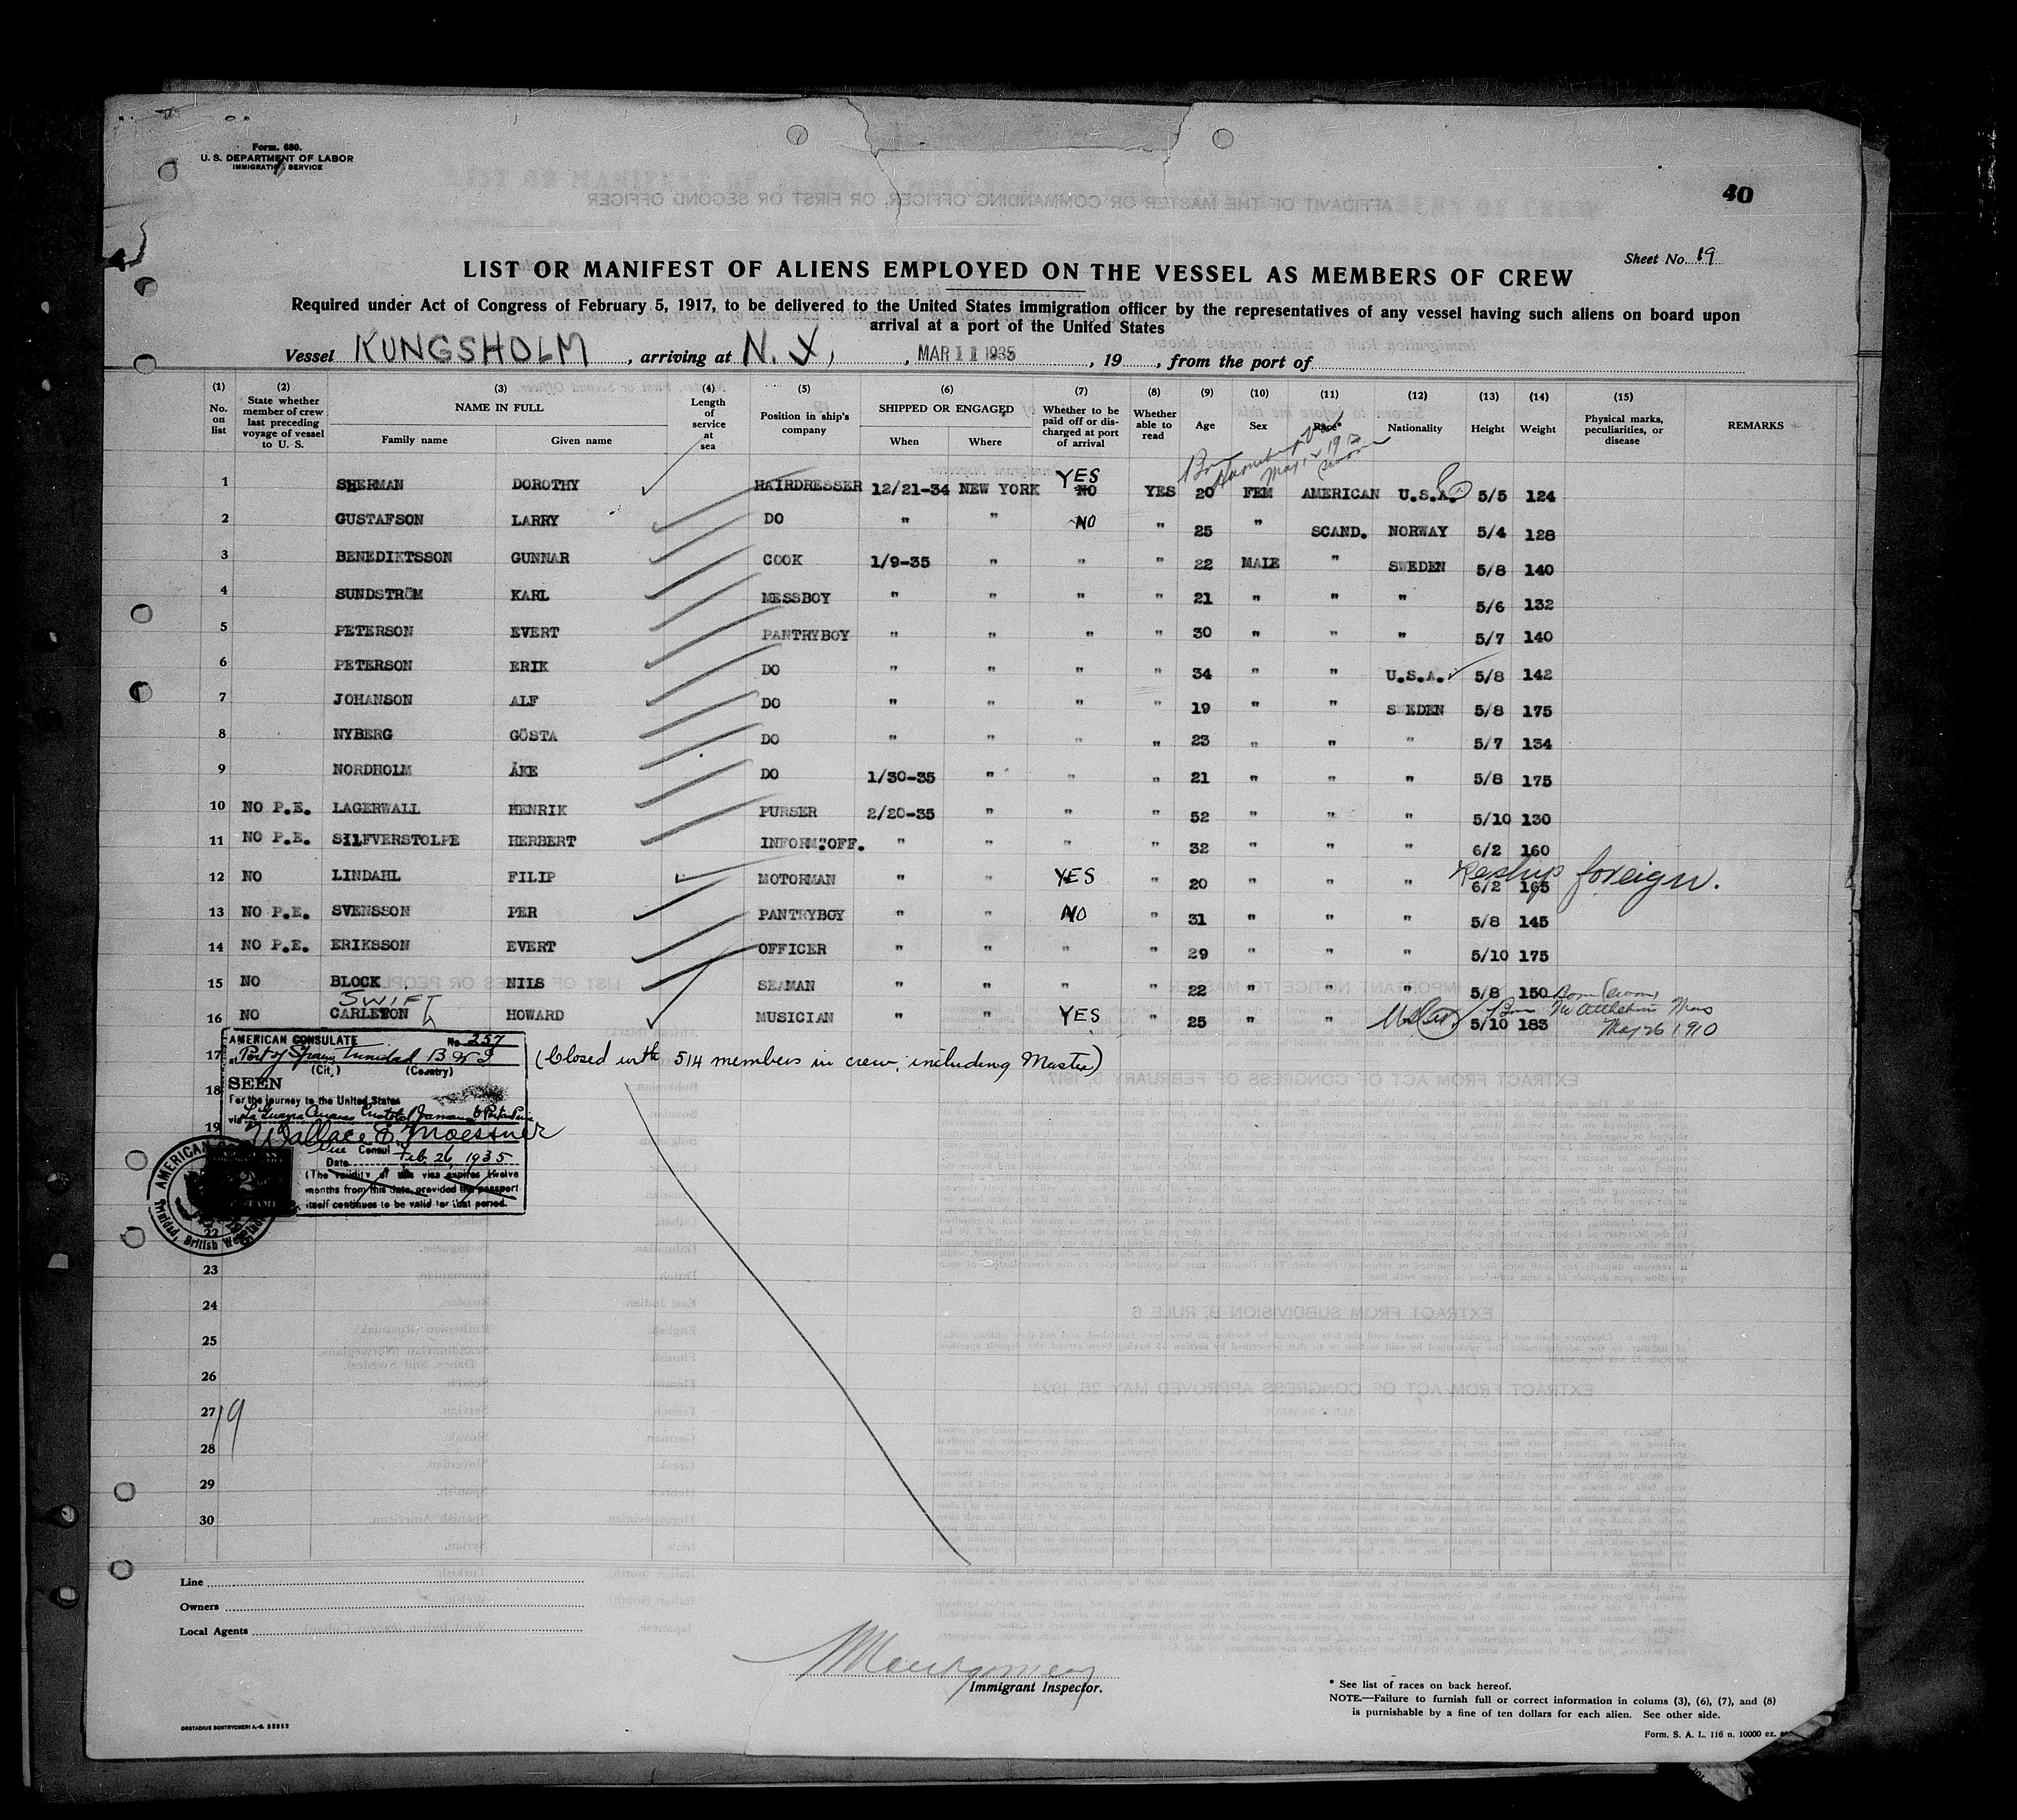 Form. 680.
U. S. DEPARTMENT OF LABOR
IMMIGRATION SERVICE
40
Sheet No. 19
LIST OR MANIFEST OF ALIENS EMPLOYED ON THE VESSEL AS MEMBERS OF CREW
Required under Act of Congress of February 5, 1917, to be delivered to the United States immigration officer by the representatives of any vessel having such aliens on board upon
arrival at a port of the United States
Vessel KUNGSHOLM, arriving at N. Y., MAR 11 1935, 19, from the port of
(1) No. on list (2) State whether member of crew last preceding voyage of vessel to U. S. (3) NAME IN FULL Family name Given name (4) Length of service at sea (5) Position in ship's company (6) SHIPPED OR ENGAGED When Where (7) Whether to be paid off or discharged at port of arrival (8) Whether able to read (9) Age (10) Sex (11) Race* (12) Nationality (13) Height (14) Weight (15) Physical marks, peculiarities, or disease REMARKS
1 SHERMAN DOROTHY HAIRDRESSER 12/21-34 NEW YORK YES NO YES 20 FEM AMERICAN U.S.A. 5/5 124
2 GUSTAFSON LARRY DO " " NO " 25 " SCAND. NORWAY 5/4 128
3 BENEDIKTSSON GUNNAR COOK 1/9-35 " " " 22 MALE " SWEDEN 5/8 140
4 SUNDSTRÖM KARL MESSBOY " " " " 21 " " " 5/6 132
5 PETERSON EVERT PANTRYBOY " " " " 30 " " " 5/7 140
6 PETERSON ERIK DO " " " " 34 " " U.S.A. 5/8 142
7 JOHANSON ALF DO " " " " 19 " " S EDEN 5/8 175
8 NYBERG GÖSTA DO " " " " 23 " " " 5/7 134
9 NORDHOLM ÅKE DO 1/30-35 " " " 21 " " " 5/8 175
10 NO P.E. LAGERWALL HENRIK PURSER 2/20-35 " " " 52 " " " 5/10 130
11 NO P.E. SILFVERSTOLPE HERBERT INFORM.OFF. " " " " 32 " " " 6/2 160
12 NO LINDAHL FILIP MOTORMAN " " YES " 20 " " " 6/2 165 Reship foreign.
13 NO P.E. SVENSSON PER PANTRYBOY " " NO " 31 " " " 5/8 145
14 NO P.E. ERIKSSON EVERT OFFICER " " " " 29 " " " 5/10 175
15 NO BLOCK NILS SEAMAN " " " " 22 " " " 5/8 150
SWIFT
16 NO CARLETON HOWARD MUSICIAN " " YES " 25 " " 5/10 183 May 26 1910
AMERICAN CONSULATE No 257
17 at Port of Spain, Trinidad B W I (Closed with 514 members in crew, including Master)
(City) (Country)
18
SEEN
For the journey to the United States
via La Guayra Curacao Cristobal
19
Wallace E. Moessner
Vice Consul
Date Feb 26, 1935
(The validity of this visa expires twelve
months from this date, provided the passport
itself continues to be valid for that period.
AMERICAN
Trinidad, British West Indies
23
24
25
26
27 19
28
29
30
Line
Owners
Local Agents
Montgomery
Immigrant Inspector.
* See list of races on back hereof.
NOTE.—Failure to furnish full or correct information in colums (3), (6), (7), and (8)
is punishable by a fine of ten dollars for each alien. See other side.
ORSTADIUS BOKTRYCKERI A.-B. 52952
Form. S. A. L. 116 n. 10000 ex.